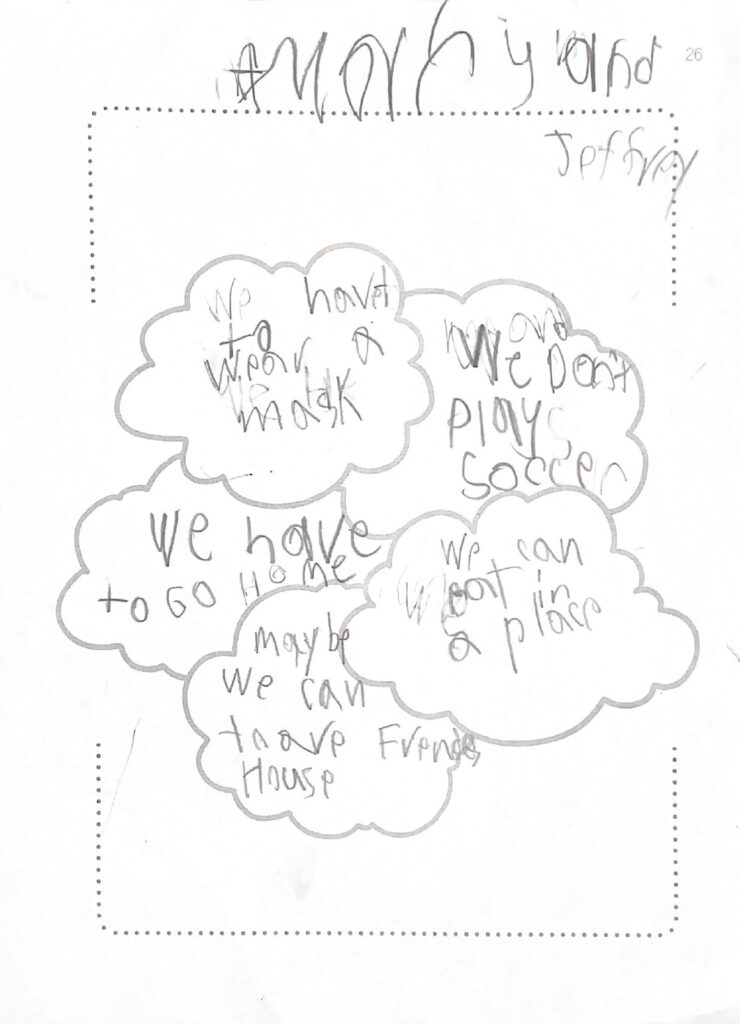 26
and
Jeffrey
We havet
to
wear a
mask
We Don't
play
soccer
We have
to GO HOME
We can
in
a place
maybe
we can
Frends
House